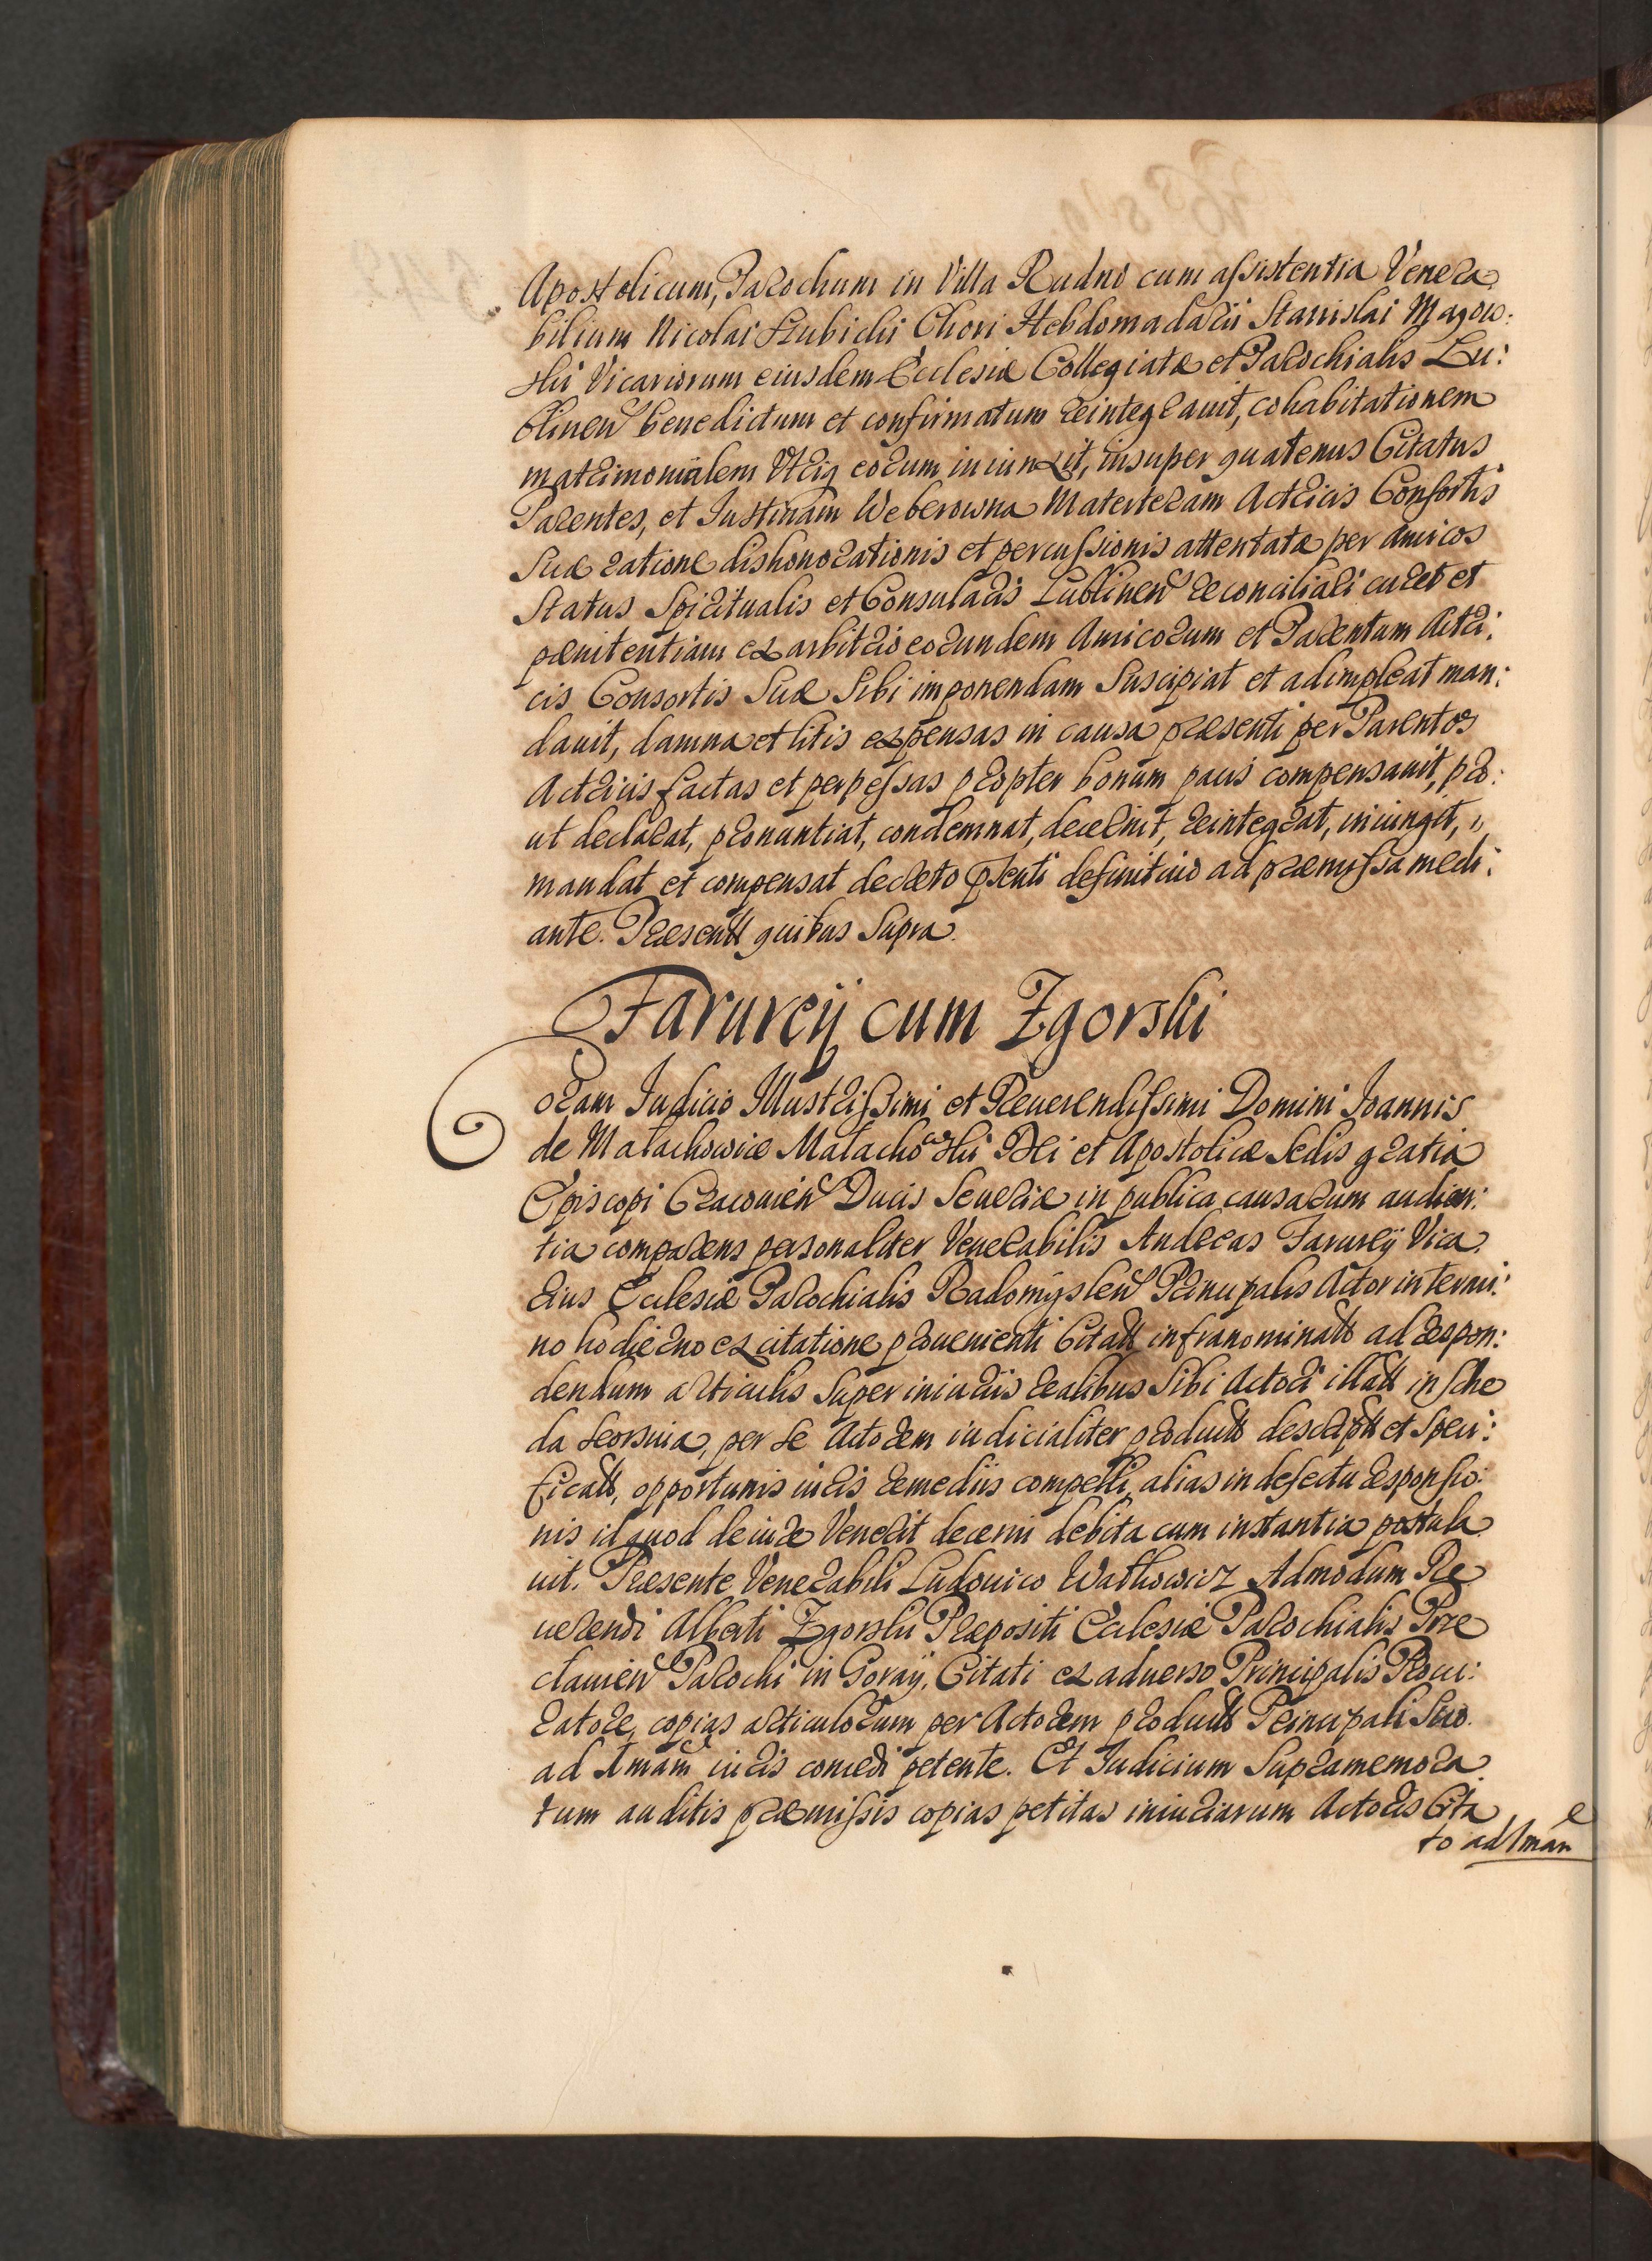 Apostolicum, Parochum in Villa Rudno cum assistentia Venera
bilium Nicolai Szubicki Chori Hebdomadarii Stanislai Magow:
ski Vicariorum eiusdem Ecclesiæ Collegiatæ et Parochialis Lu:
blinen benedictum et confirmatum reintegrauit, cohabitationem
matrimonialem Vtriq eorum iniunxit, insuper quatenus Citatus
Parentes, et Iustinam Weberowna Materteram Actricis Consortis
Suæ ratione dishonorationis et percussionis attentatæ per amicos
Status Spiritualis et Consularis Lublinen reconciliari curet et
pænitentiam ex arbitrio eorundem Amicorum et Parentum Actri:
cis Consortis Suæ Sibi imponendam Suscipiat et adimpleat man:
dauit, damna et litis expensas in causa præsenti per Parentes
Actricis factas et perpessas propter bonum pacis compensauit, pro:
ut declarat, pronuntiat, condemnat, decernit, reintegrat, iniungit,
mandat et compensat decreto pñti definitiuo ad præmissa medi:
ante. Præsentt quibus Supra.
Farurey cum Zgorski
Coram Iudicio Illustrissimi et Reuerendissimi Domini Ioannis
de Malachowice Malachowski Dei et Apostolicæ Sedis gratia
Episcopi Cracouien Ducis Seueriæ in publica causarum audien:
tia comparens personaliter Venerabilis Andreas Farurey Vica
rius Ecclesiæ Parochialis Radomyslen Principalis Actor in termi:
no hodierno ex citatione prouenienti Citatt infranominatt ad respon:
dendum articulis Super iniuriis realibus Sibi Actori illatt in Sche
da Seorsiua, per Se Actorem iudicialiter productt descriptt et Speci:
ficatt, opportunis iuris remediis compelli, alias in defectu responsio:
nis id quod de iure Venerit decerni debita cum instantia postula
uit. Præsente Venerabili Ludouico Wathowicz Admodum Re
uerendi Alberti Zgorski Præpositi Ecclesiæ Parochialis Prze
clauien Parochi in Goray, Citati ex aduerso Principalis Procu:
ratore, copias articulorum per Actorem productt Principali Suo
ad Imam iuris concedi petente. Et Iudicium Supramemora
tum auditis præmissis copias petitas iniuriarum Actoris Cita
to ad Imam